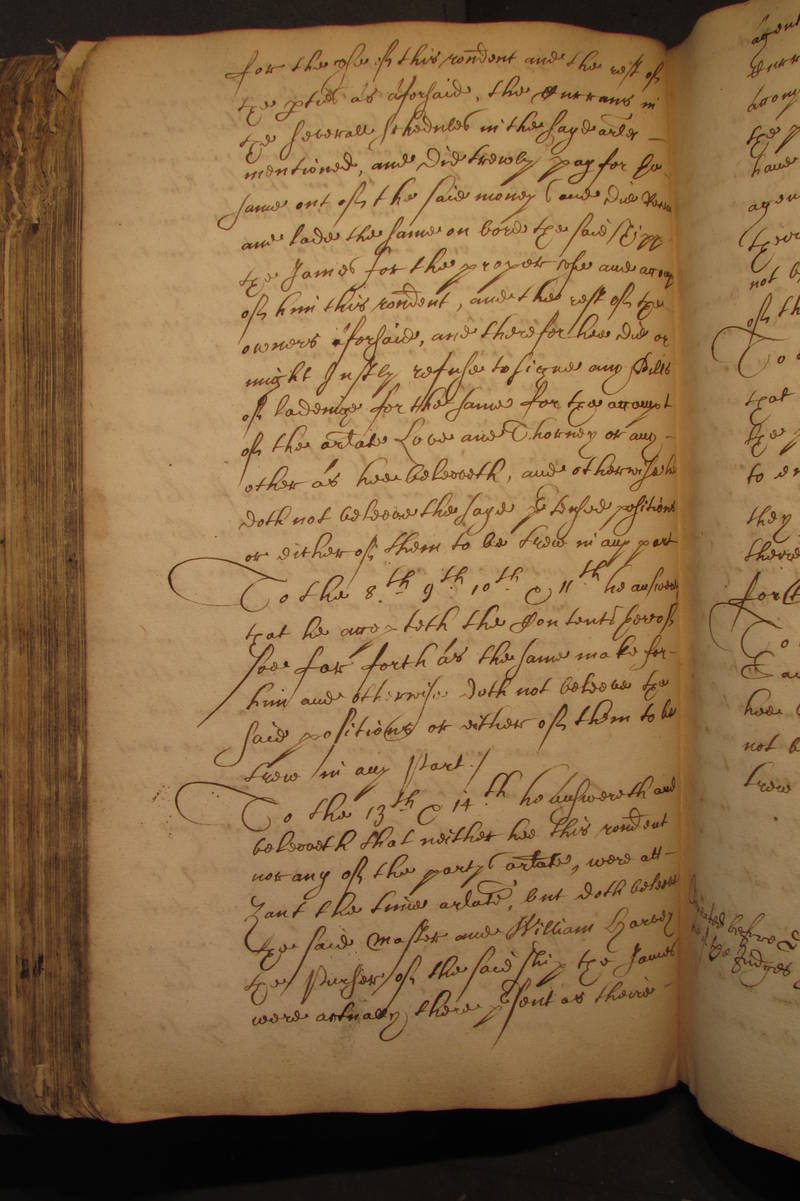 for the use of this rondent and the rest of
the pties as aforsaid, the Currans in
the severall schedules in the sayd arler
mentioned, and did trewly pay for the
same out of the said moneys and did
and lade the same on bord the said shipp
the James for the proper use and accompt
of him this rondent, and the rest of the
owners aforsaid, and therefor hee did or
might Justly refuse to signe any Bills
of ladeing for the same for the accompt
of the arlate Love and Thorney or any
other as hee beleeveth, and otherwise he
doth not beleeve the sayd ptensed positions
or either of them to be trew in any part
To the 8.th 9th 10th & 11th he answereth
that he accepteth the Contents hereof
soe far forth as the same make for
him and otherwise doth not beleeve the
said positions or either of them to be
trew in any part./
To the 13th & 14th he answereth and
beleeveth that neither hee this rondent
nor any of the partys arlate, were att
Zant the time arlate, but doth beleeve
the said Master and William Harvey
the Purser of the said ship the James
were actually there psent as theire
agent
Curr
the p
have
agen
their
not b
of th
To
that
the p
to en
they
there
for
To
hee
not b
trew
before
the Judges